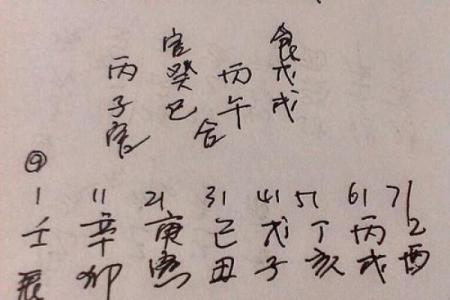 丙子官
官癸巳
丙午
合
食戊戌
⑨
1 11 21 31 41 51 61 71
壬 辛 庚 己 戊 丁 丙 乙
辰 卯 寅 丑 子 亥 戌 酉